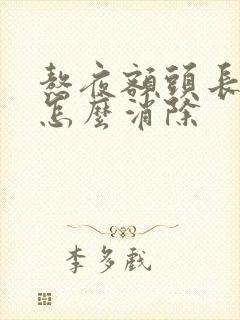 熬夜額頭長
怎麼消除
李多戲